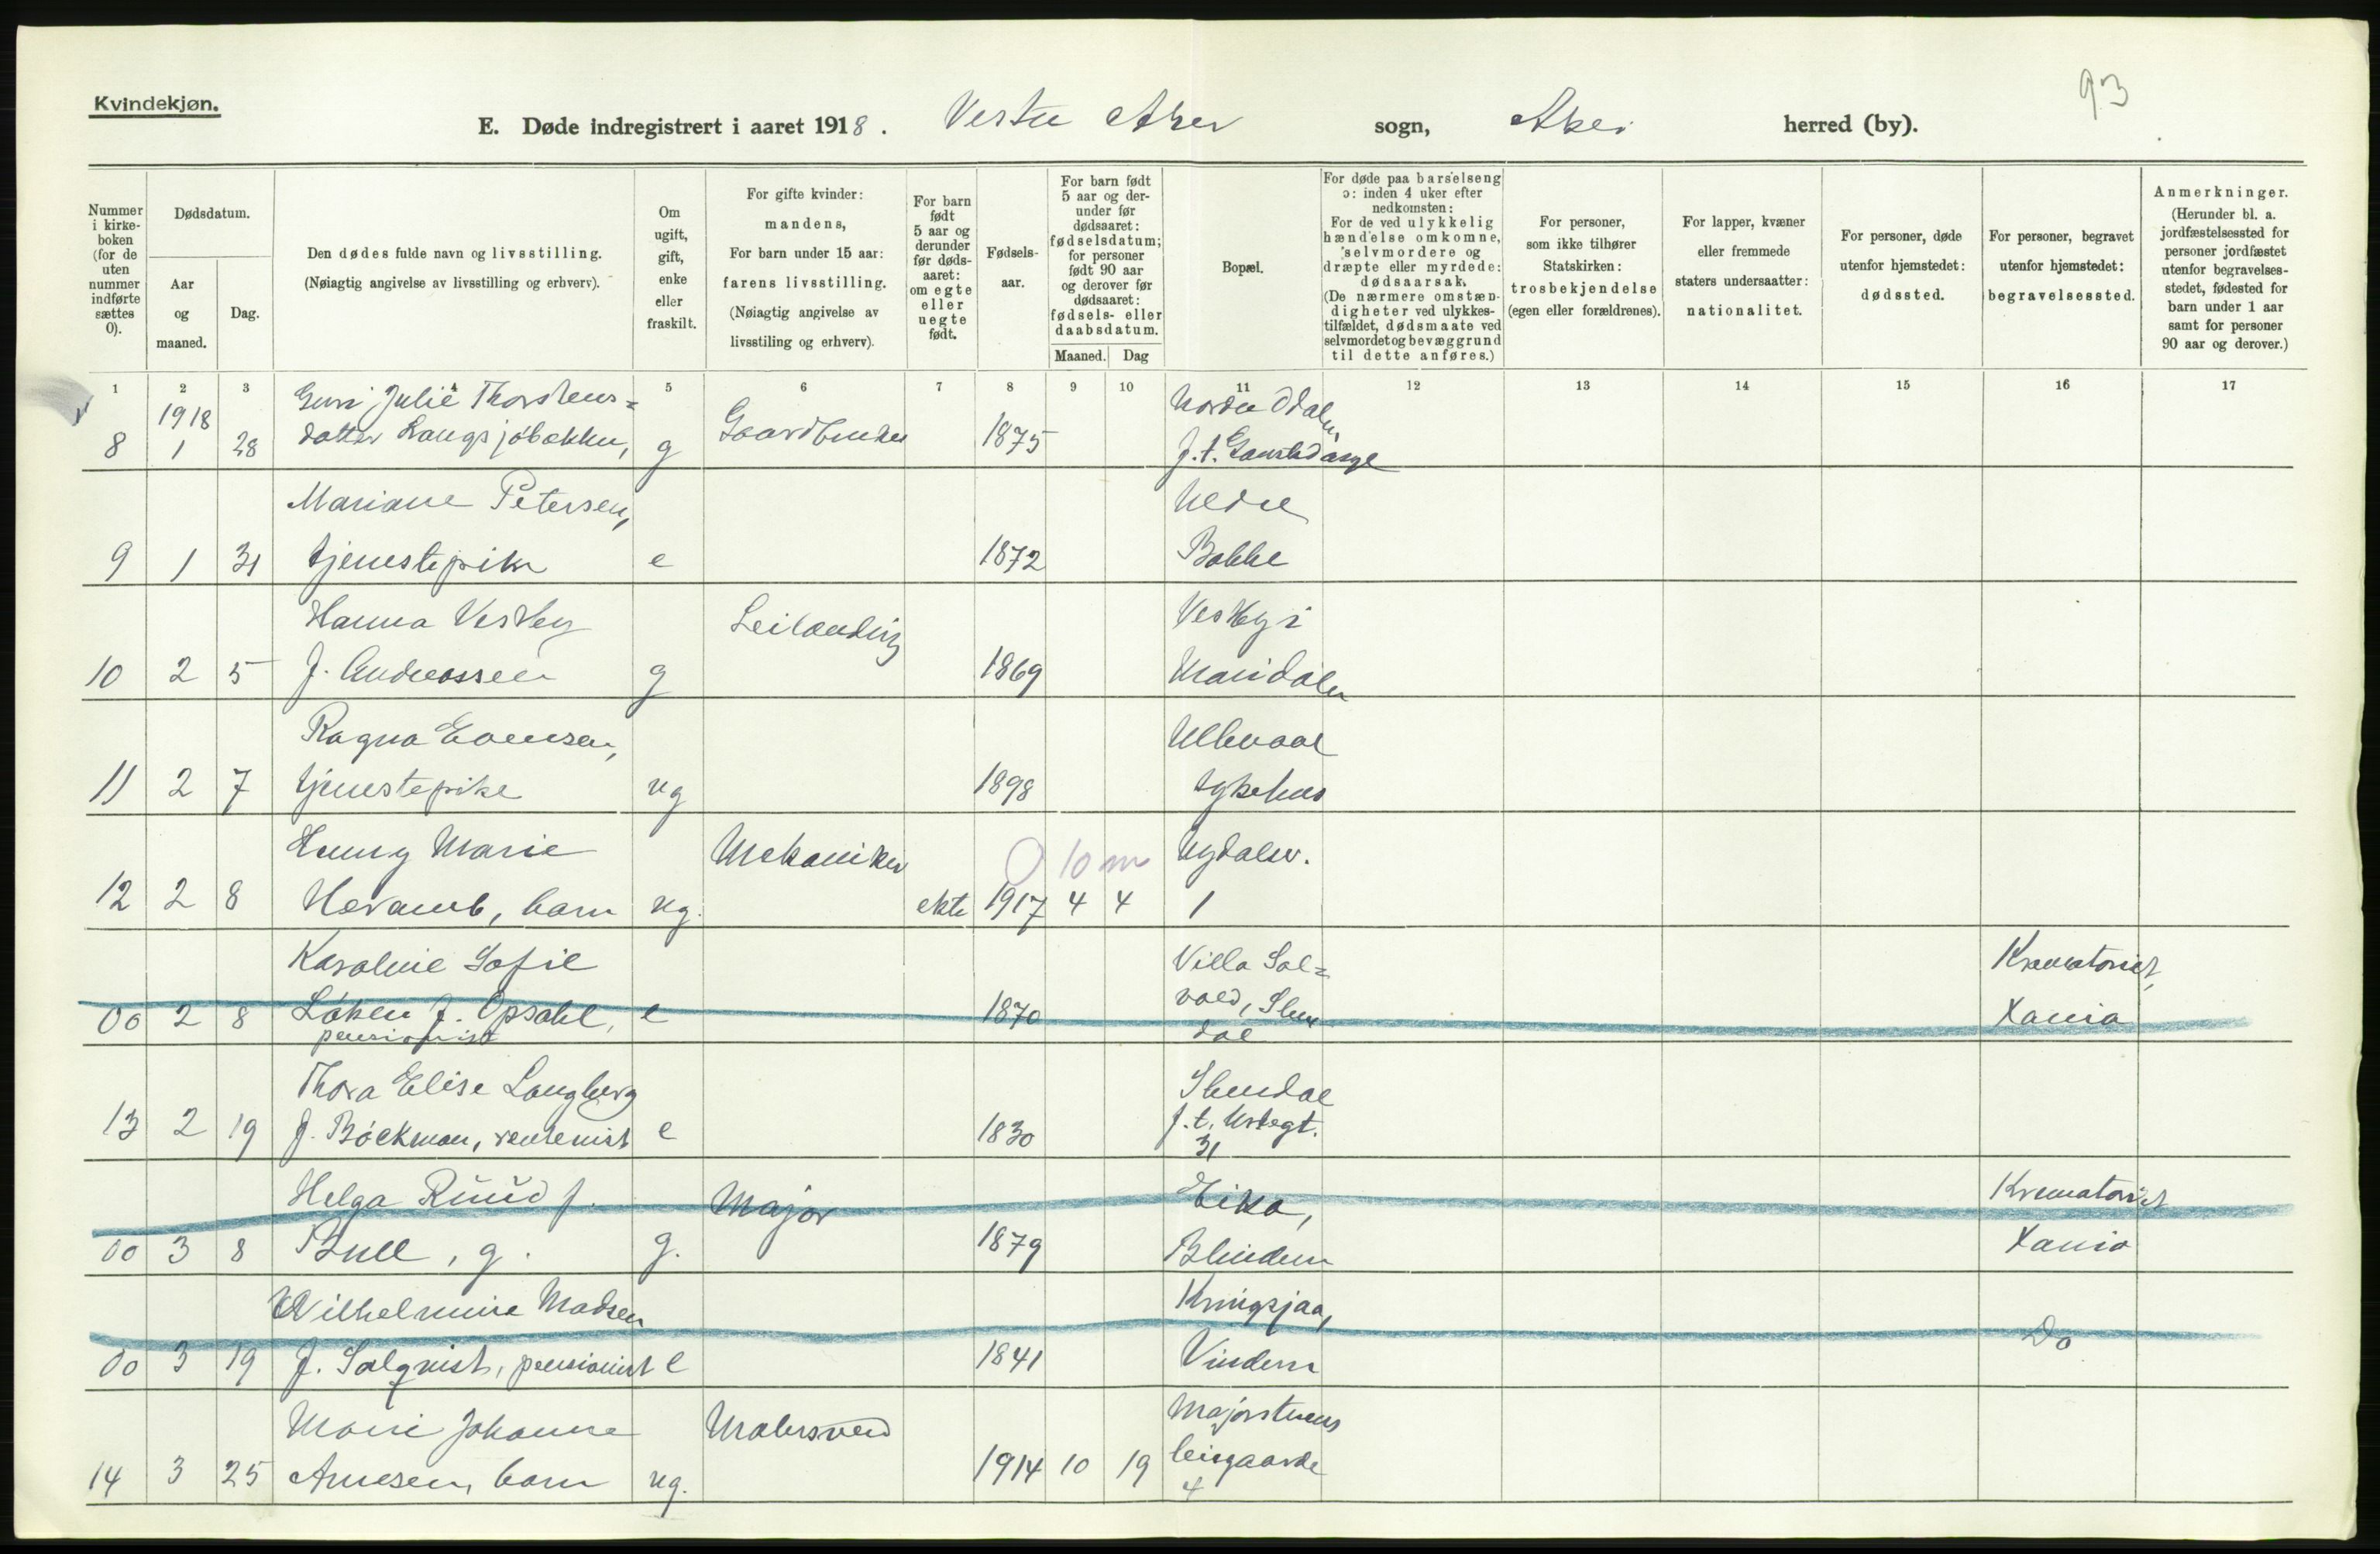 Kvindekjøn.
93
E. Døde indregistrert i aaret 1918. Vestre Aker sogn, Aker herred (by).
Nummer i kirke-boken (for de uten nummer indførte sættes 0).
Dødsdatum.
Aar og maaned.
Dag.
Den dødes fulde navn og livsstilling.
(Nøiagtig angivelse av livsstilling og erhverv).
Om ugift, gift, enke eller fraskilt.
For gifte kvinder: mandens,
For barn under 15 aar: farens livsstilling.
(Nøiagtig angivelse av livsstiling og erhverv).
For barn født 5 aar og derunder før døds-aaret: om egte eller uegte født.
Fødsels-aar.
For barn født 5 aar og der-under før dødsaaret: fødselsdatum; for personer født 90 aar og derover før dødsaaret: fødsels- eller daabsdatum.
Maaned. Dag
Bopæl.
For døde paa barselseng ɔ: inden 4 uker efter nedkomsten:
For de ved ulykkelig hændelse omkomne, selvmordere og dræpte eller myrdede: dødsaarsak.
(De nærmere omstæn-digheter ved ulykkes-tilfældet, dødsmaate ved selvmordet og bevæggrund til dette anføres.)
For personer, som ikke tilhører Statskirken: trosbekjendelse (egen eller forældrenes).
For lapper, kvæner eller fremmede staters undersaatter: nationalitet.
For personer, døde utenfor hjemstedet: dødssted.
For personer, begravet utenfor hjemstedet: begravelsessted.
Anmerkninger.
(Herunder bl. a. jordfæstelsessted for personer jordfæstet utenfor begravelses-stedet, fødested for barn under 1 aar samt for personer 90 aar og derover.)
1 2 3 5 6 7 8 9 10 11 12 13 14 15 16 17
1918 Guri Julie Thorstens= Nordre Odalen
8 1 28 datter Langsjøbakken, g Gaardbruker 1875 f.t. Gaustad asyl
Mariane Petersen, Nedre
9 1 31 tjenestepike e 1872 Bakke
Hanna Vestby Leilænding Vestby i
10 2 5 f. Andreassen g 1869 Maridalen
Ragna Evensen, Ullevaal
11 2 7 tjenestepike ug 1898 sykehus
Henny Marie Mekaniker 0 10 m Nydalsv.
12 2 8 barn ug. ekte 1917 4 4 1
Karoline Sofie Villa Sol= Krematoriet,
00 2 8 Løken f. Opsahl, e 1870 vold, Slem Xania
pensionist dal
Thora Elise Langberg Slemdal
13 2 19 f. Bøckman, rentenist e 1830 f.t.
31
Helga Ruud f. Major Eika, Krematoriet
00 3 8 Bull, g. g. 1879 Blindern Xania
Wilhelmine Madsen Kringsjaa, Do
00 3 19 f. Salqvist, pensionist e 1841 Vindern
Marie Johanne Malersvend Majorstuens
14 3 25 Arnesen, barn ug. 1914 10 19 leiegaarde
4